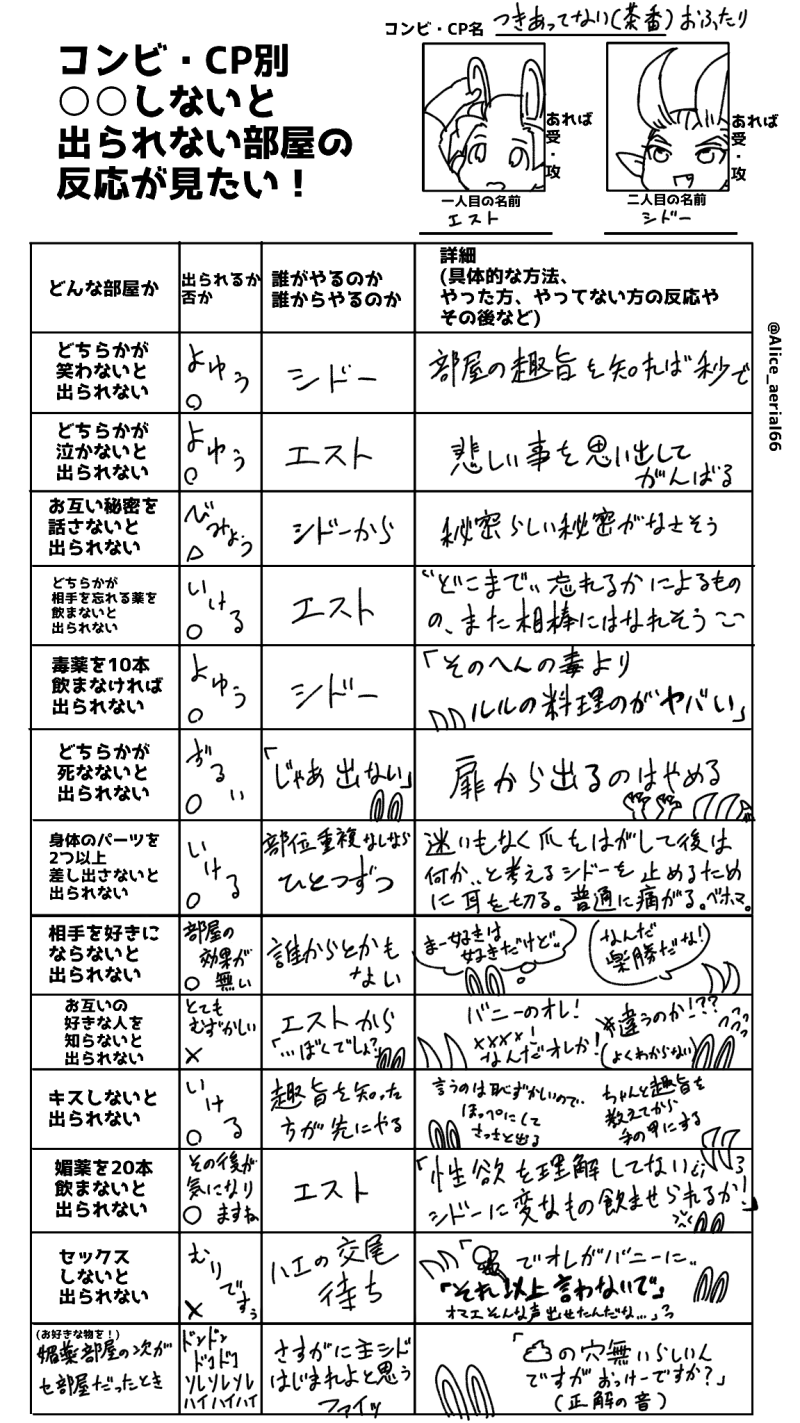 コンビ・CP別
○○しないと
出られない部屋の
反応が見たい！
コンビ・CP名 つきあってない(茶番)おふたり
あれば
受・攻
一人目の名前
エスト
あれば
受・攻
二人目の名前
シドー
@Alice_aerial66
どんな部屋か
出られるか
否か
誰がやるのか
誰からやるのか
詳細
(具体的な方法、
やった方、やってない方の反応や
その後など)
どちらかが
笑わないと
出られない
よゆう
○
シドー
部屋の趣旨を知れば秒で
どちらかが
泣かないと
出られない
よゆう
○
エスト
悲しい事を思い出して
がんばる
お互い秘密を
話さないと
出られない
びみょう
△
シドーから
秘密らしい秘密がなさそう
どちらかが
相手を忘れる薬を
飲まないと
出られない
いける
○
エスト
“どこまで〟忘れるかによるもの
の、また相棒にはなれそう
毒薬を10本
飲まなければ
出られない
よゆう
○
シドー
「そのへんの毒より
ルルの料理のがヤバい」
どちらかが
死なないと
出られない
ずるい
○
「じゃあ出ない」
扉から出るのはやめる
身体のパーツを
2つ以上
差し出さないと
出られない
いける
○
部位重複なしなら
ひとつずつ
迷いもなく爪をはがして後は
何か..と考えるシドーを止めるため
に耳を切る。普通に痛がる。ベホマ。
相手を好きに
ならないと
出られない
部屋の
効果が
無い
○
誰からとかも
ない
まー好きは
好きだけど..
なんだ
楽勝だな!
お互いの
好きな人を
知らないと
出られない
とても
むずかしい
×
エストから
「…ぼくでしょ?」
バニーのオレ!
××××!
なんだオレか!
違うのか!??
(よくわからない)
キスしないと
出られない
いける
○
趣旨を知った
方が先にやる
言うのは恥ずかしいので、
ほっぺにして
さっさと出る
ちゃんと趣旨を
教えてから
手の甲にする
媚薬を20本
飲まないと
出られない
その後が
気になり
ますね
○
エスト
「性欲を理解してない
シドーに変なもの飲ませられるか!」
セックス
しないと
出られない
むりですぅ
×
ハエの交尾
待ち
「
でオレがバニーに..
「それ以上言わないで」
オマエそんな声出せたんだな…」
(お好きな物を！)
媚薬部屋の次が
セ部屋だったとき
ドンドン
ドコドコ
ソレソレソレ
ハイハイハイ
さすがに主シド
はじまれよと思う
ファイッ
「
の穴無いらしいん
ですがおっけーですか?」
(正解の音)